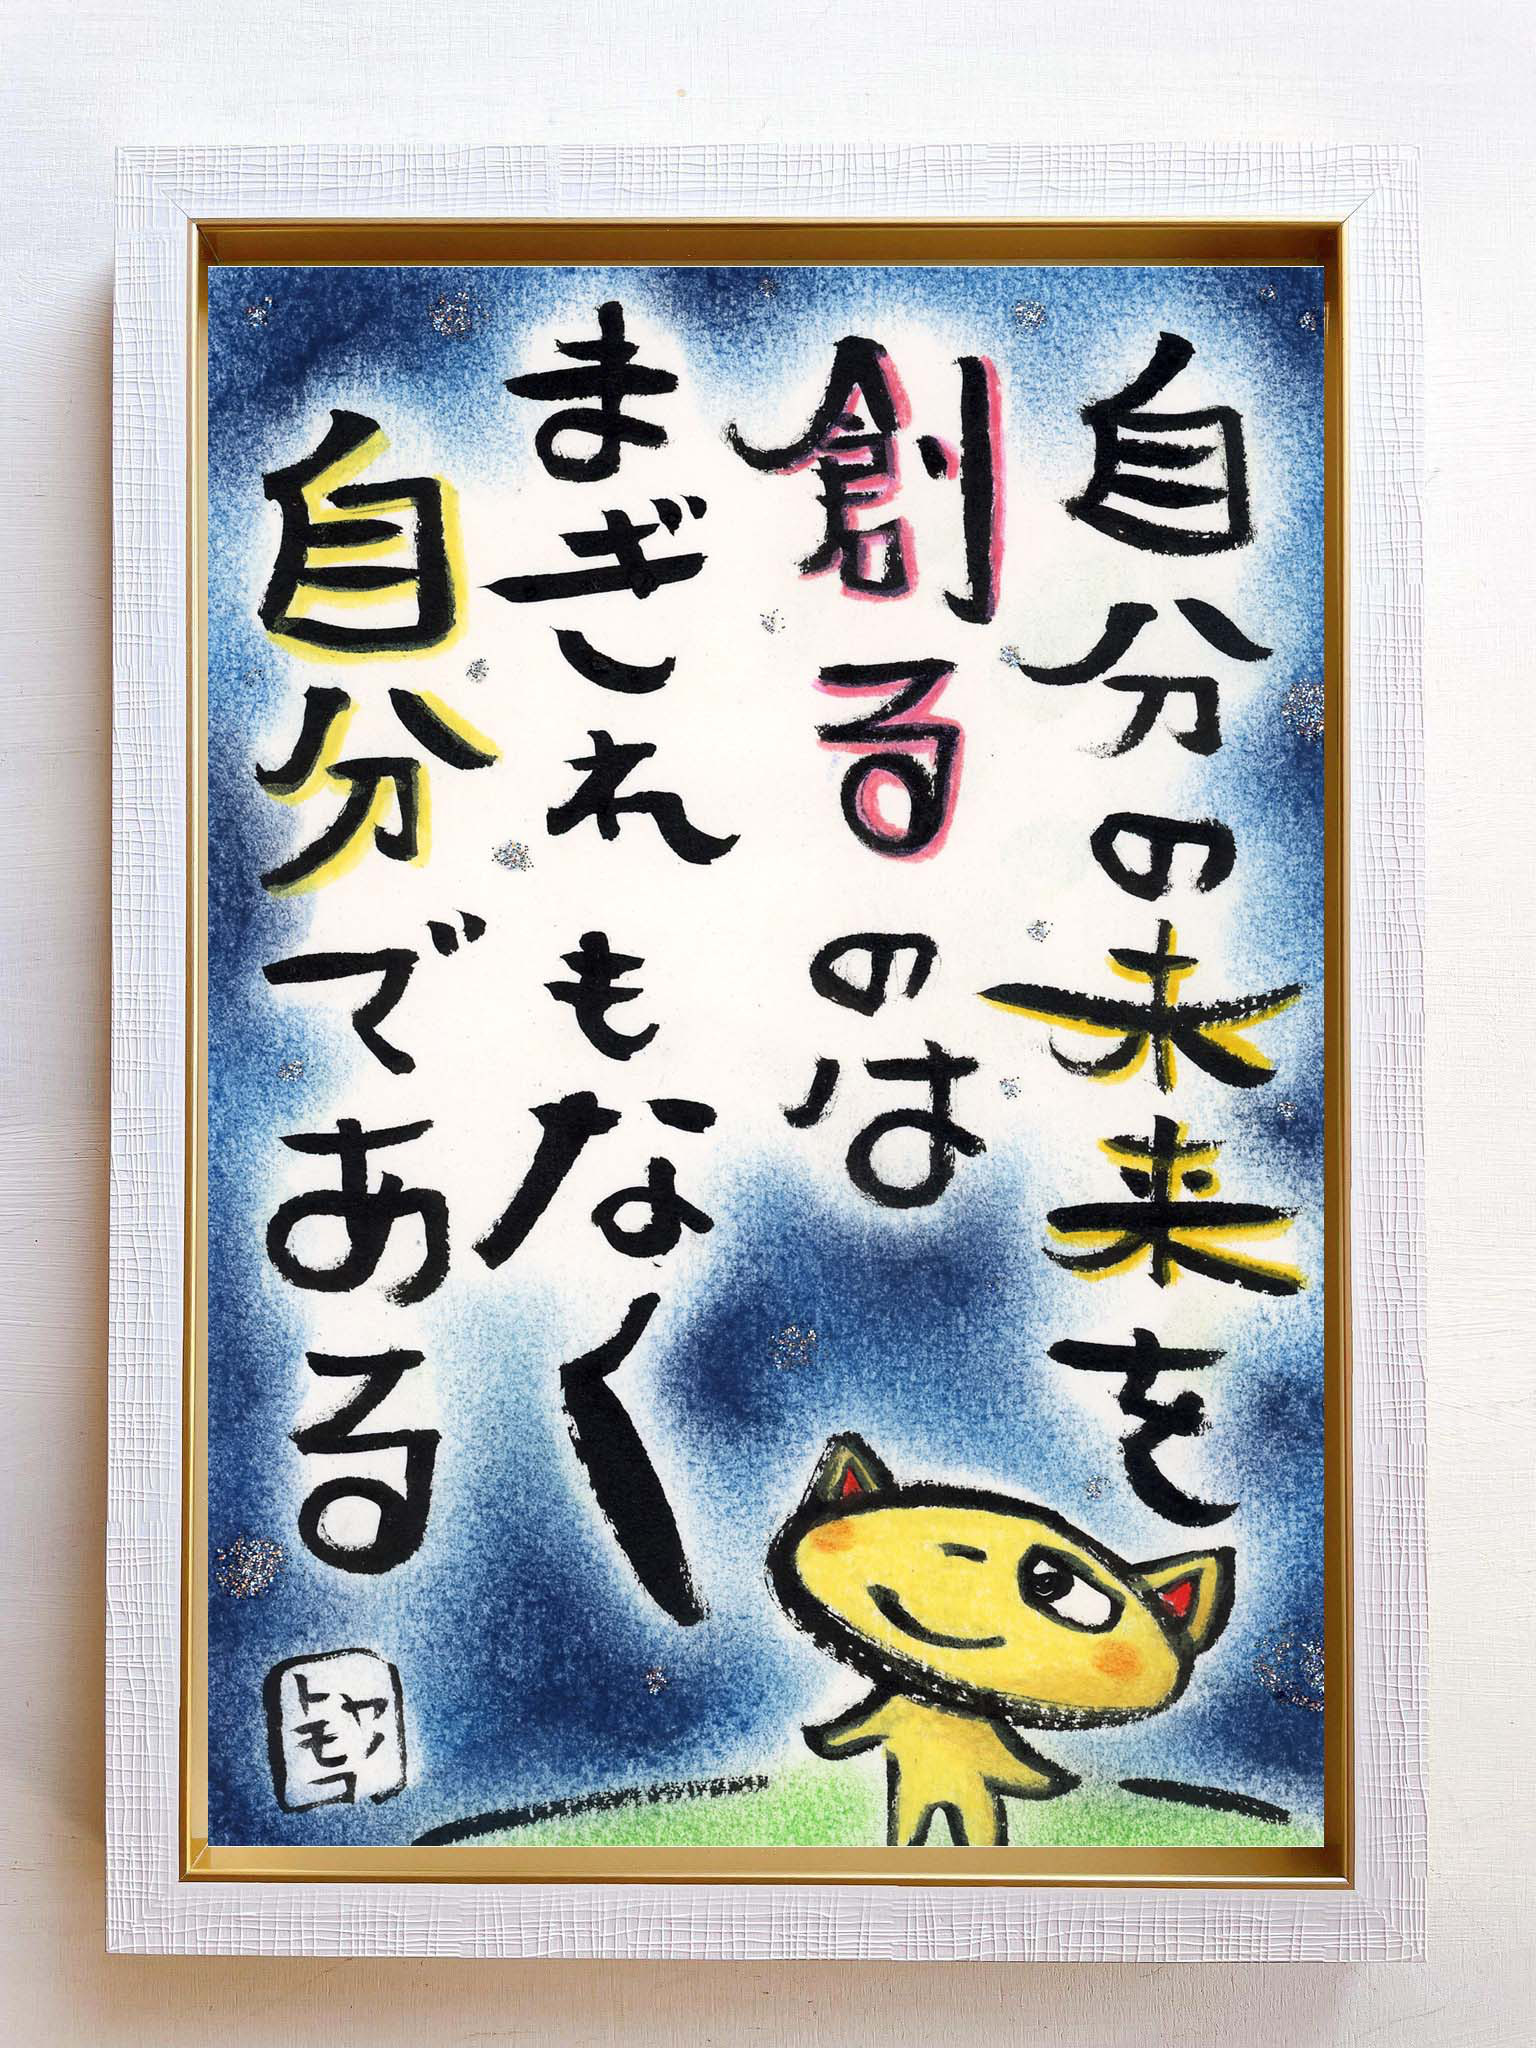 自分の未来を
創るのは
まぎれもなく
自分である
ヤノ
トモコ